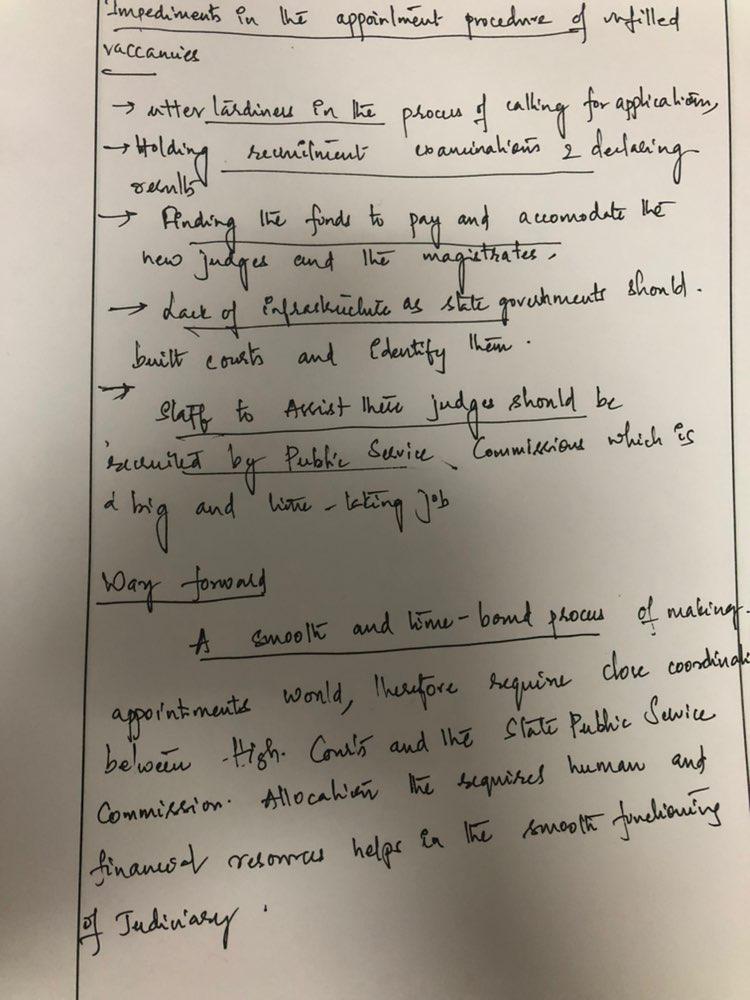 Impediments in the appointment procedure of unfilled
vaccancies
→ utter tardiness in the process of calling for applications,
→ Holding recruitment examinations & declaring
results
→ Finding the funds to pay and accomodate the
new judges and the magistrates.
→ Lack of infrastructute as state governments should.
built courts and identify them.
→
Staff to Assist these judges should be
recruited by Public Service Commissions which is
a big and time-taking job
Way forward
A smooth and time-bond process of making
appointments would, therefore require close coordinati
between High. Courts and the State Public Service
Commission. Allocation the requires human and
financial resources helps in the smooth functioning
of Judiciary.